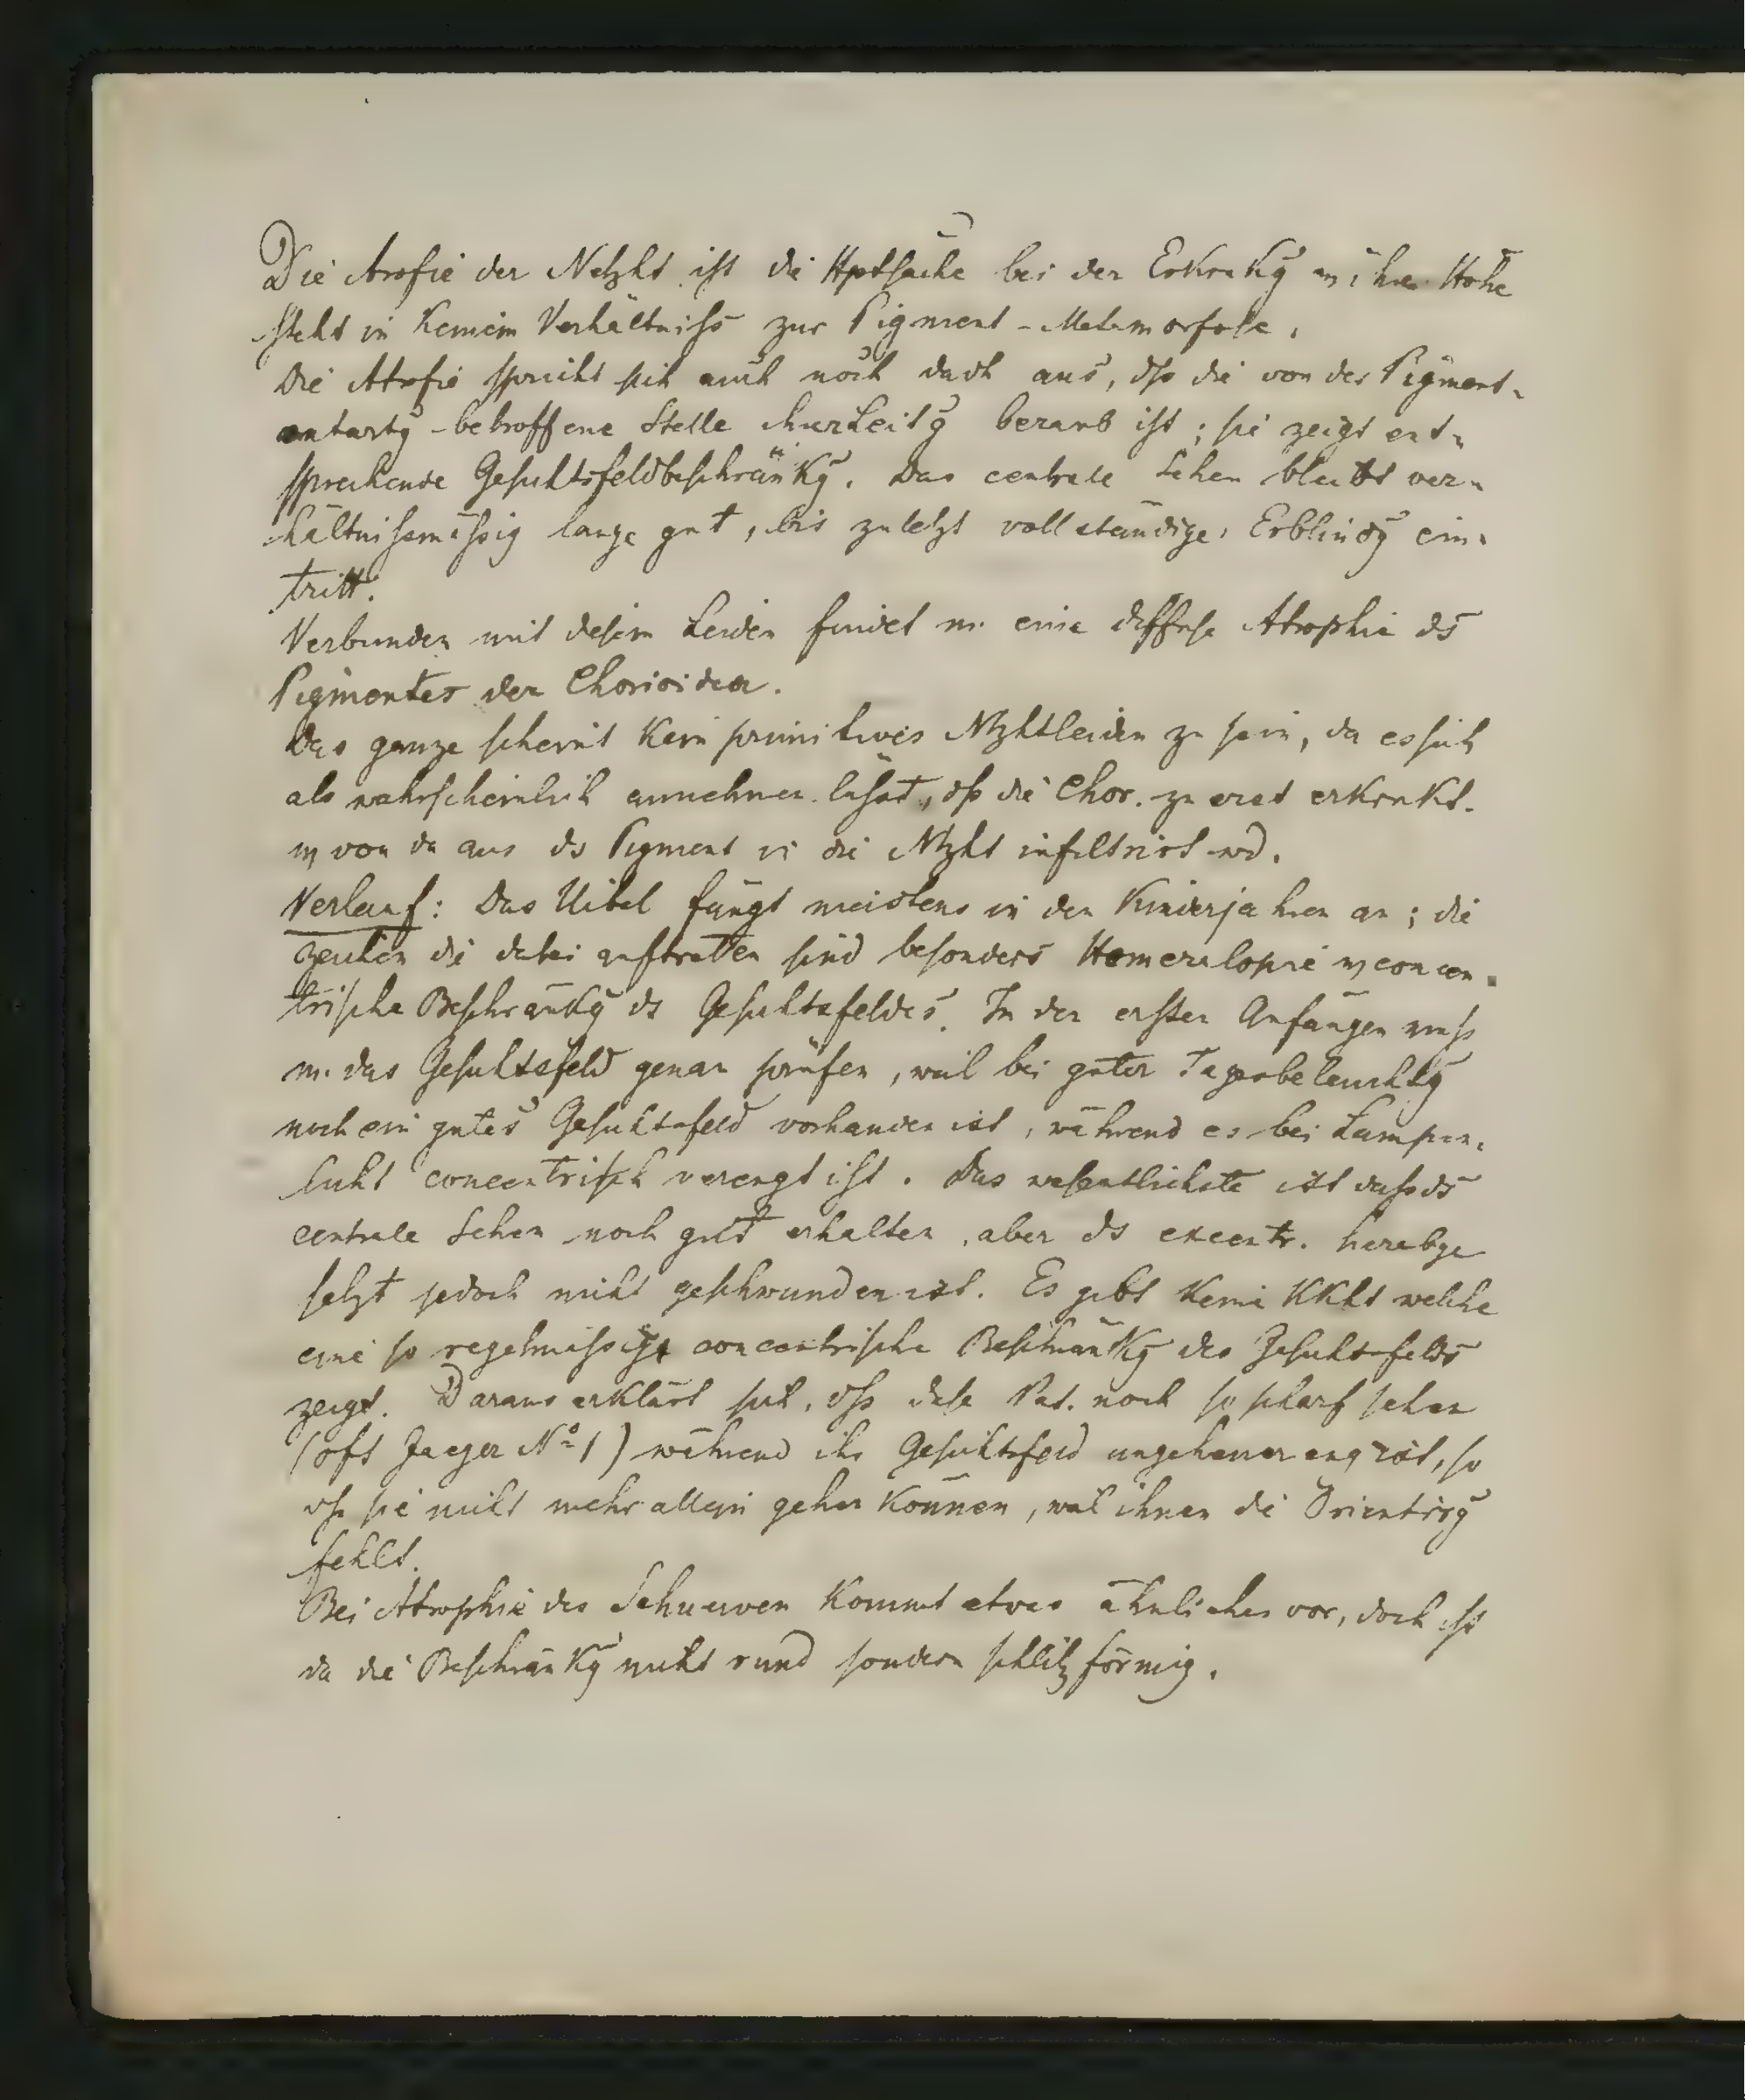 Die Atrofie der Netzht ist die Hptsache bei der Erkrakg u ihre Höhe
steht in keinem Verhältniss zur Pigment-Metamorfose.
Die Atrofie spricht sich auch noch dadh aus, dss die von der Pigment-
entartg betroffene Stelle ihrer Leitg beraub ist; sie zeigt ent-
sprechende Gesichtsfeldbeschränkg. Das centrale Sehen bleibt ver-
hältnissmässig lange gut, bis zuletzt vollständige Erblindg ein-
tritt.
Verbunden mit diesem Leiden findet m. eine diffuse Atrophie ds
Pigmentes der Chorioidea.
Das ganze scheint kein primitives Ntzhtleiden zu sein, da es sich
als wahrscheinlich annehmen lässt, dss die Chor. zu erst erkrakt
u von da aus ds Pigment i die Ntzht infiltrirt wd.
Verlauf: Das Uibel fängt meistens in den Kinderjahren an; die
Zeichen die dabei auftreten sind besonders Hemeralopie u concen-
trische Beschränkg ds Gesichtsfeldes. In den ersten Anfängen muss
m. das Gesichtsfeld genau prüfen, weil bei guter Tagesbeleuchtg
noch ein gutes Gesichtsfeld vorhanden ist, während es bei Lampen-
licht concentrisch verengt ist. Das wesentlichste ist dass ds
centrale Sehen noch gut erhalten, aber ds excentr. herabge
setzt jedoch nicht geschwunden ist. Es gibt keine Kkht welche
eine so regelmässige concentrische Beschränkg des Gesichtsfelds
zeigt. Daraus erklärt sich, dss diese Pat. noch so scharf sehen
(oft Jaeger Nº 1) während ihr Gesichtsfeld ungeheuer eng ist, so
dss sie nicht mehr allein gehen können, weil ihnen die Orientirg
fehlt.
Bei Atrophie des Sehnerven kommt etwas ähnliches vor, doch ist
da die Beschränkg nicht rund sondern schlitzförmig.